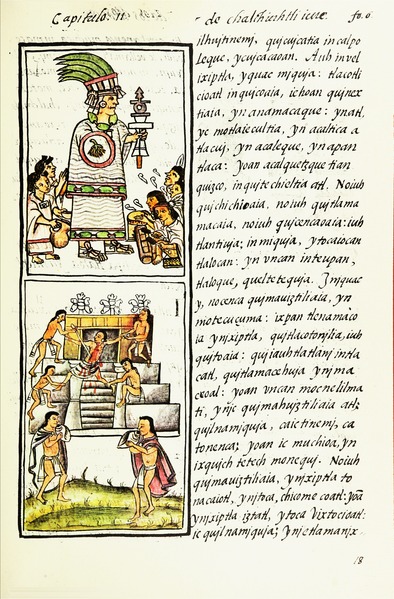 Capitulo. 11
de chalchiuhtli icue. fo. 6
ilhujtinemj, qujcujcatia in calpo
leque, ycujcacaoan. Auh in vel
ixiptla, yquac mjquja: tlacotli
cioatl inqujcoaia, ichoan qujnex
tiaia, yn anamacaque: ynatl,
yc motlaiecultia, yn acaltica a
tlacuj, yn acaleque, yn apan
tlaca: yoan acalquetzque tian
quizco, inqujtechieltia atl. Noiuh
qujchichioaia, noiuh qujtlama
macaia, noiuh qujcencaoaia: iuh
tlantiuja: in mjquja, ytocaiocan
tlalocan: yn vncan inteupan,
tlaloque, queltetequja. Injquac
y, no cenca qujmaujztiliaia, yn
motecuçuma: ixpan tlenamaco
ia ynixiptla, qujtlacotonjlia, iuh
qujtoaia: qujiauhtlatlanj intla
catl, qujtlamacehuja ynjma
ceoal: yoan vncan mocnelilma
ti, ynjc qujmahujztiliaia atl:
qujlnamjquja, ca ictinemj, ca
tonenca; yoan ic muchioa, yn
ixqujch tetech monequj. Noiuh
qujmaujztiliaia, ynixiptla to
nacaiotl, ynjtoca, chicome coatl: yoã
ynjxiptla iztatl, ytoca Vixtocioatl:
ic qujlnamjquja; ynjc tlamanjx-
18